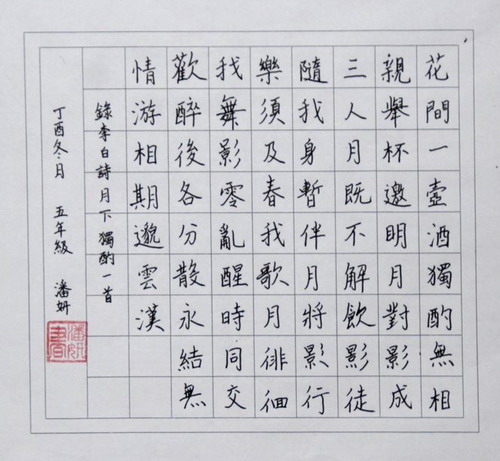 花間一壺酒獨酌無相
親舉杯邀明月對影成
三人月既不解飲影徒
隨我身暫伴月將影行
樂須及春我歌月徘徊
我舞影零亂醒時同交
歡醉後各分散永結無
情游相期邈雲漢
錄李白詩月下獨酌一首
丁酉冬月 五年級 潘妍
潘妍